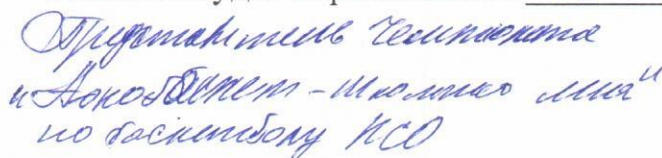 Представитель Чемпионата
"Локобаскет - Школьная лига"
по баскетболу НСО